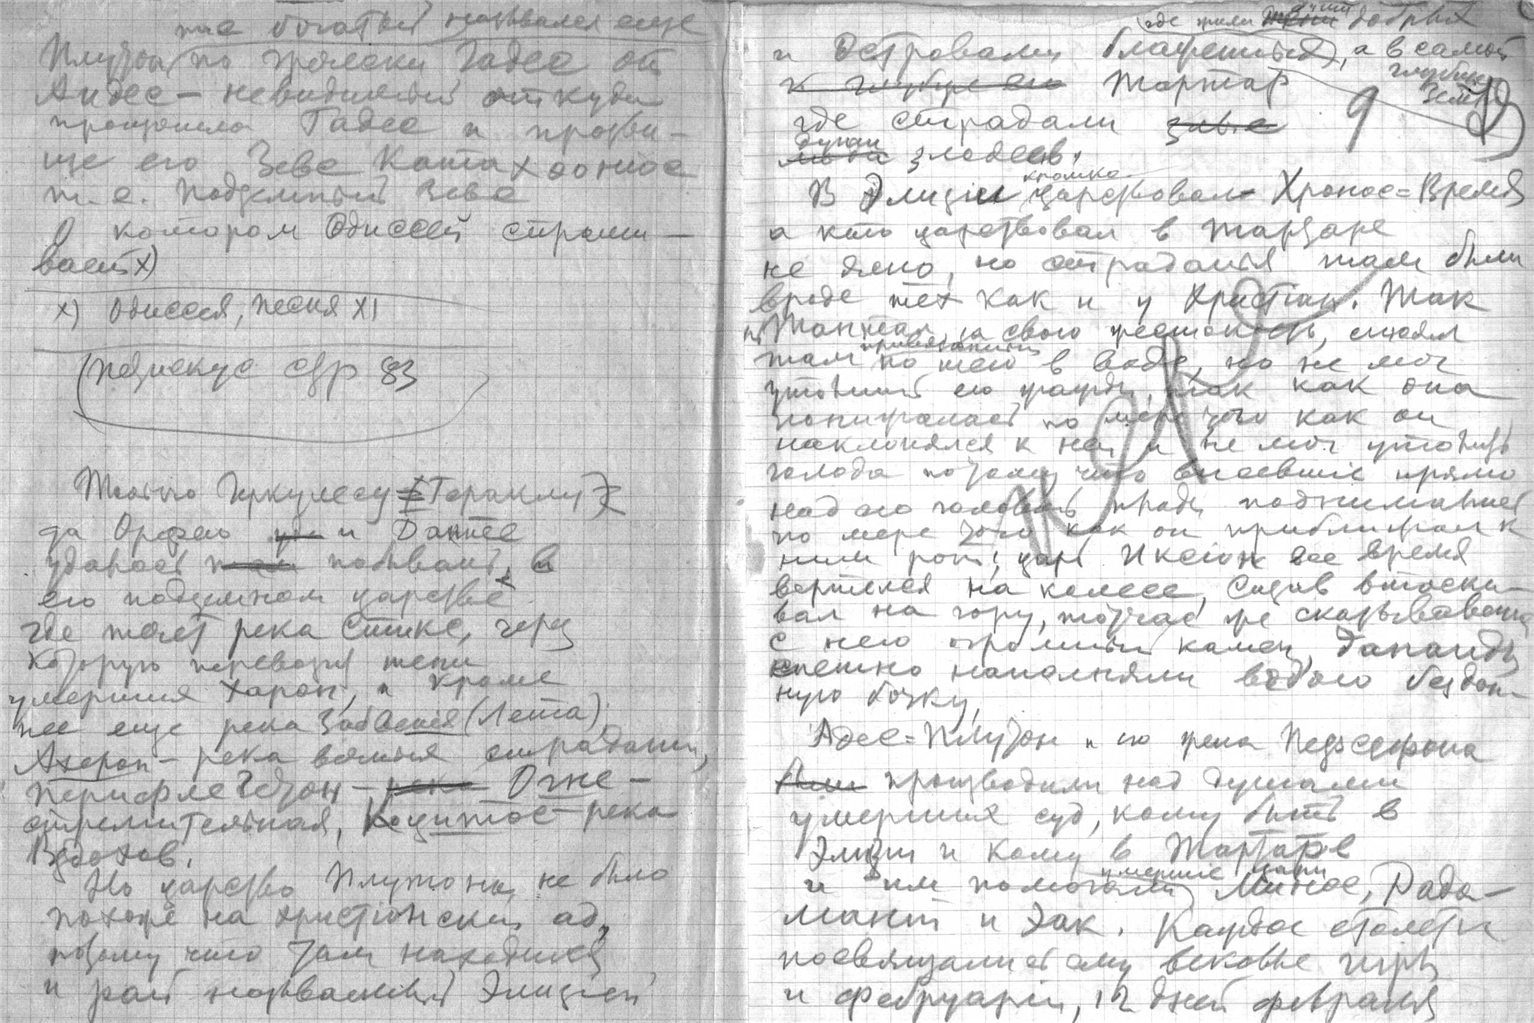 же богатый назывался еще
Плутон по гречески Гадес от
Аидес — невидимый откуда
произошло Гадес и прозви-
ще его Зевс Катахθониос
т.е. Подземный Зевс
о котором Одиссей спраши-
вает x)
x) Одиссея, песня XI
стр 83
Только Геркулесу = Гераклу
да Орфею и Данте
удалось побывать в
его подземном царстве
где течет река Стикс, через
которую перевозит тени
умерших Харон, а кроме
нее еще река Забвения (Лета),
Ахерон — река вечных страданий,
Перифлегетон — Огне-
стремительная, Коцитос — река
Вздохов.
Но царство Плутона не было
похоже на христианский ад,
потому что там находился
и рай называемый Элизией
(где жили души добрых
и Островами блаженных), а в самой
глубине
земли
Тартар 9
где страдали
души злодеев.
В Элизии царствовал Хронос = Время
а кто царствовал в Тартаре
не ясно, но страданья там были
вроде тех как и у Христиан. Так
Тантал, за свою жестокость, стоял
там по шею в воде, но не мог
утолить ею жажды, так как она
понижалась по мере того как он
наклонялся к ней и не мог утолить
голода потому что висевшие прямо
над его головою плоды поднимались
по мере того как он приближал к
ним рот; царь Иксион все время
вертелся на колесе, Сизиф втаски-
вал на гору, тотчас же скатывавшийся
с нее огромный камень, Данаиды
спешно наполняли водою бездон-
ную бочку,
Адес = Плутон и его жена Педзефона
производили над душами
умерших суд, кому быть в
Элизии и кому в Тартаре
умершие цари
и им помогали Минос, Рада-
мант и Эак. Каждое столетие
посвящались ему вековые игры
и фебруарии, 12 дней февраля